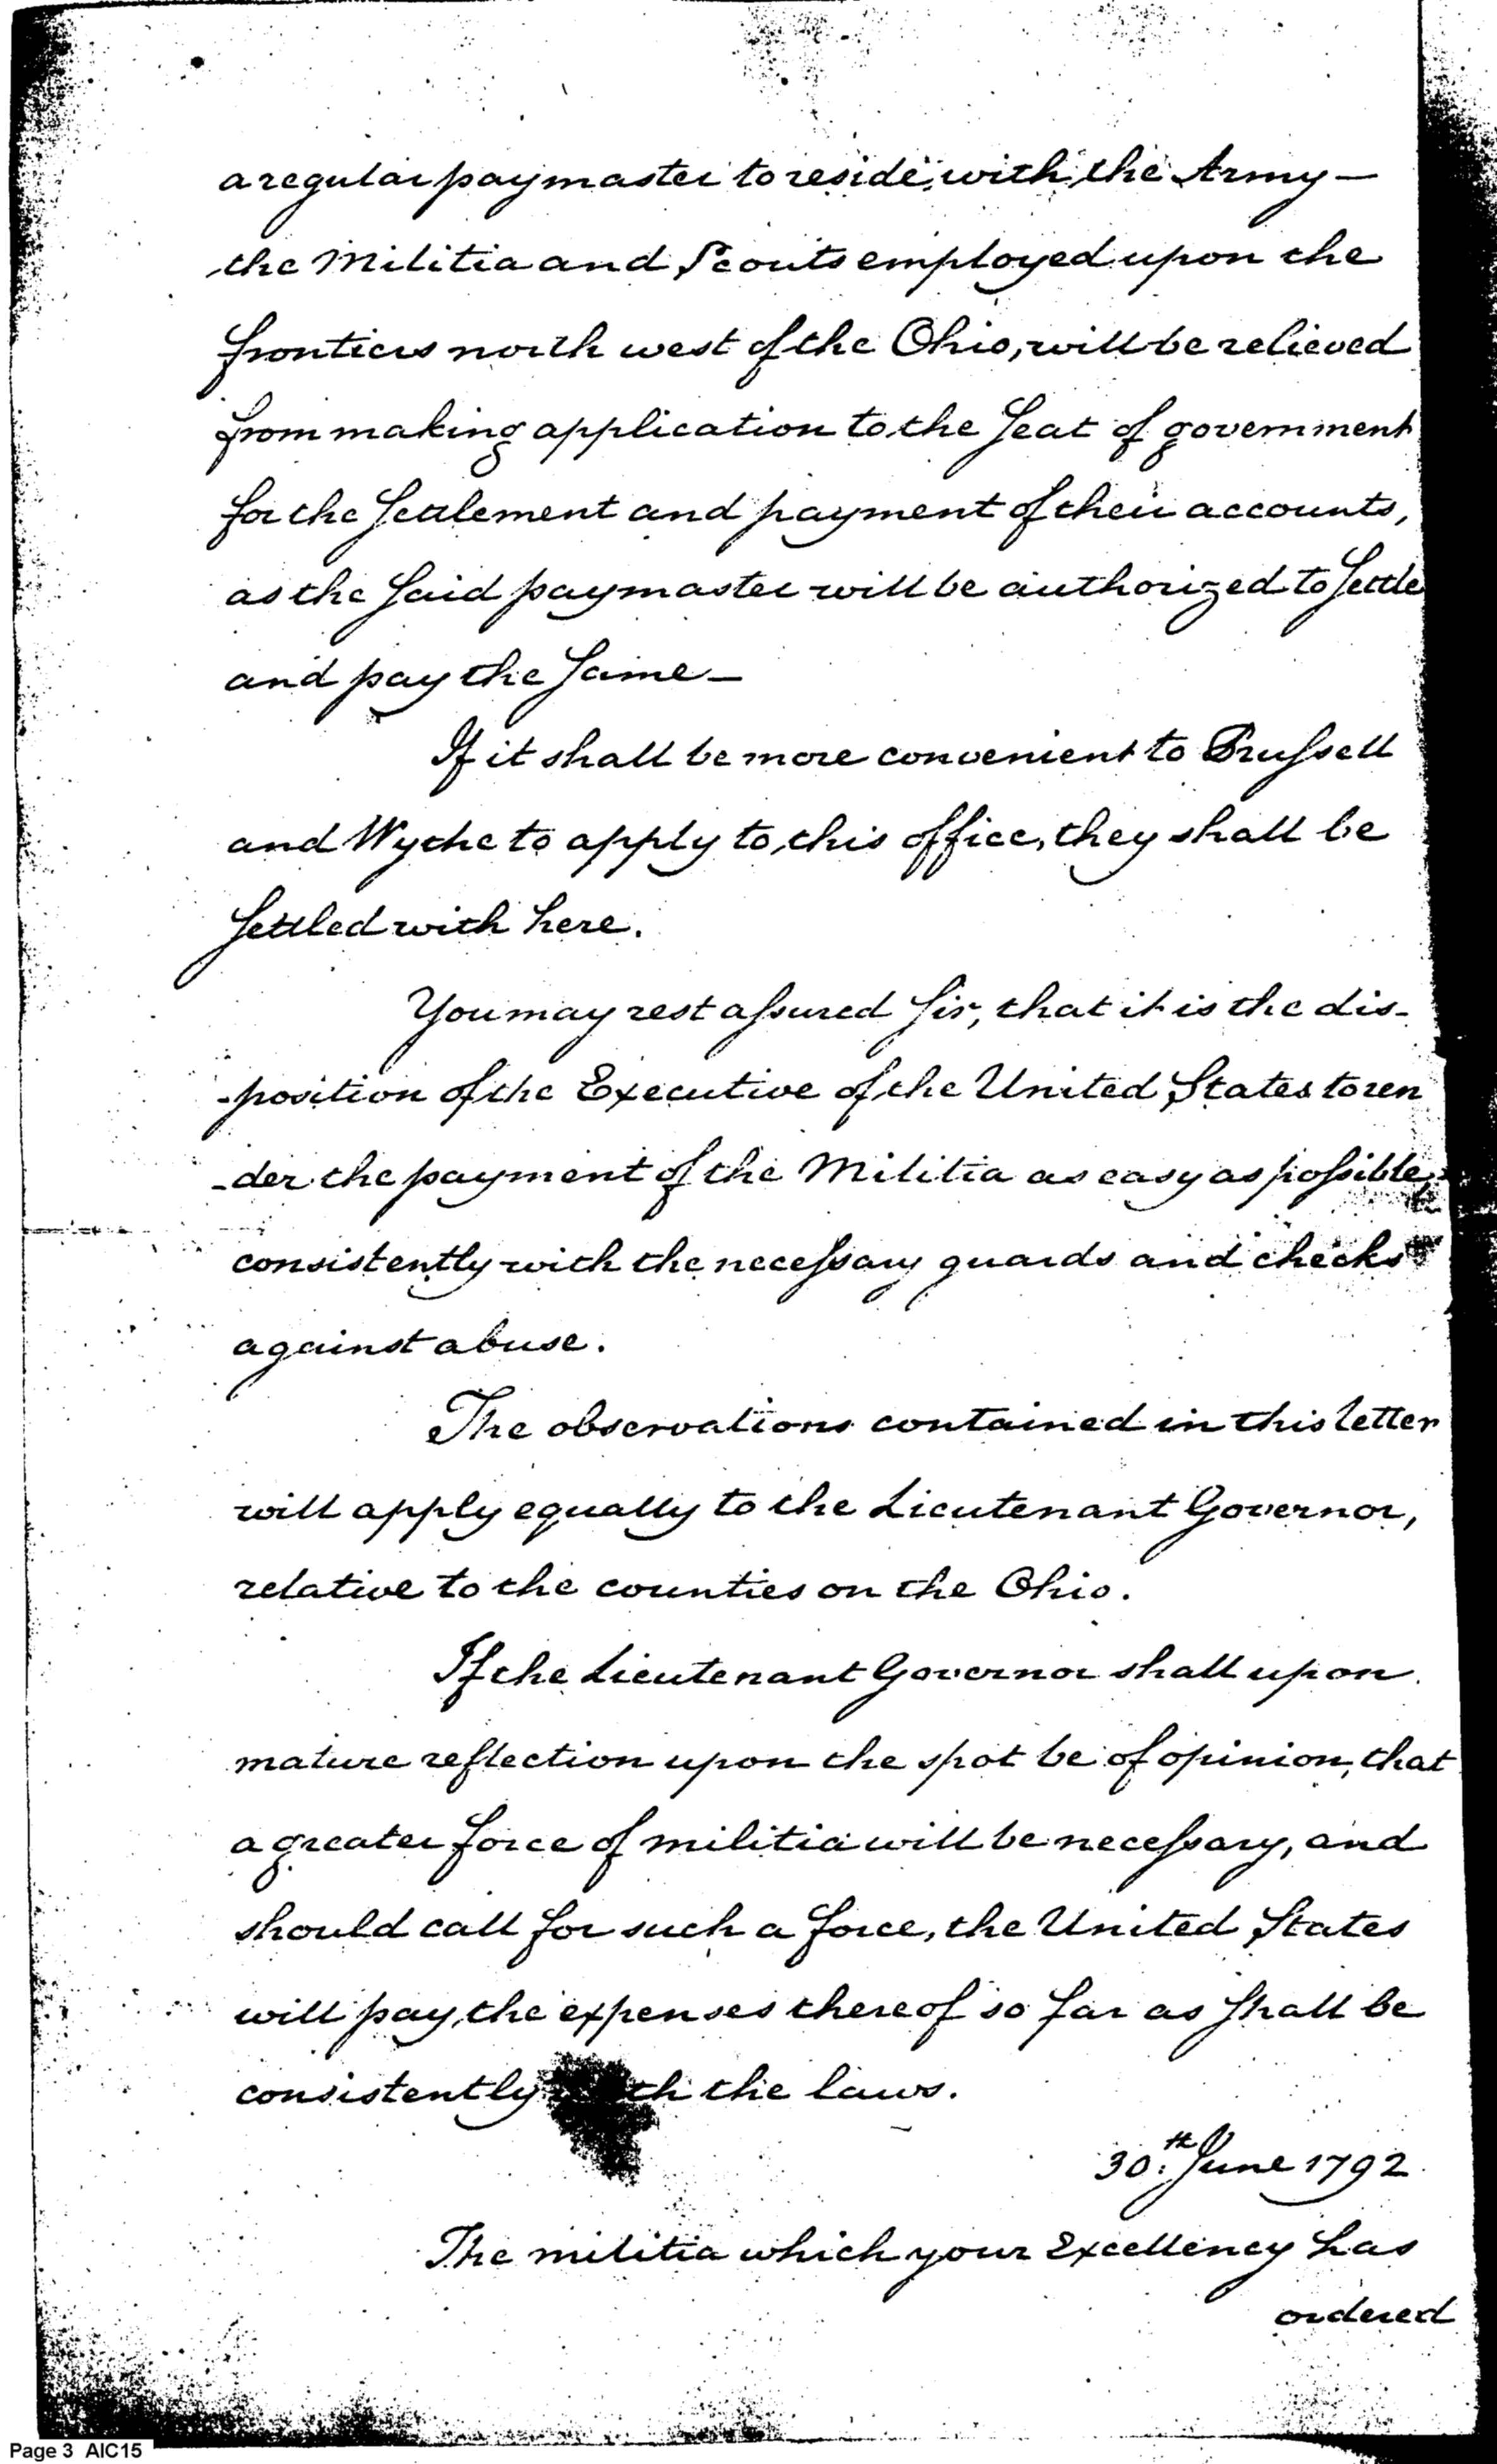 a regular paymaster to reside with the Army—
the Militia and Scouts employed upon the
frontiers north west of the Ohio, will be relieved
from making application to the Seat of government
for the Settlement and payment of their accounts,
as the Said paymaster will be authorized to Settle
and pay the Same—
If it shall be more convenient to Brussell
and Wythe to apply to this office, they shall be
Settled with here.
You may rest assured Sir, that it is the dis-
-position of the Executive of the United States to ren
-der the payment of the Militia as easy as possible,
consistently with the necessary guards and checks
against abuse.
The observations contained in this letter
will apply equally to the Lieutenant Governor,
relative to the counties on the Ohio.
If the Lieutenant Governor shall upon
mature reflection upon the spot be of opinion, that
a greater force of militia will be necessary, and
should call for such a force, the United States
will pay the expenses thereof so far as shall be
consistently the laws.
30th June 1792
The militia which your Excellency has
ordered
Page 3 AIC15